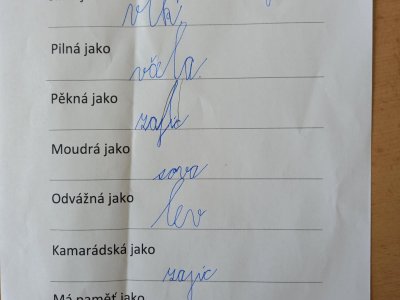 vlk.
Pilná jako
včela.
Pěkná jako
zajíc
Moudrá jako
sova
Odvážná jako
lev
Kamarádská jako
zajíc
Má paměť jako